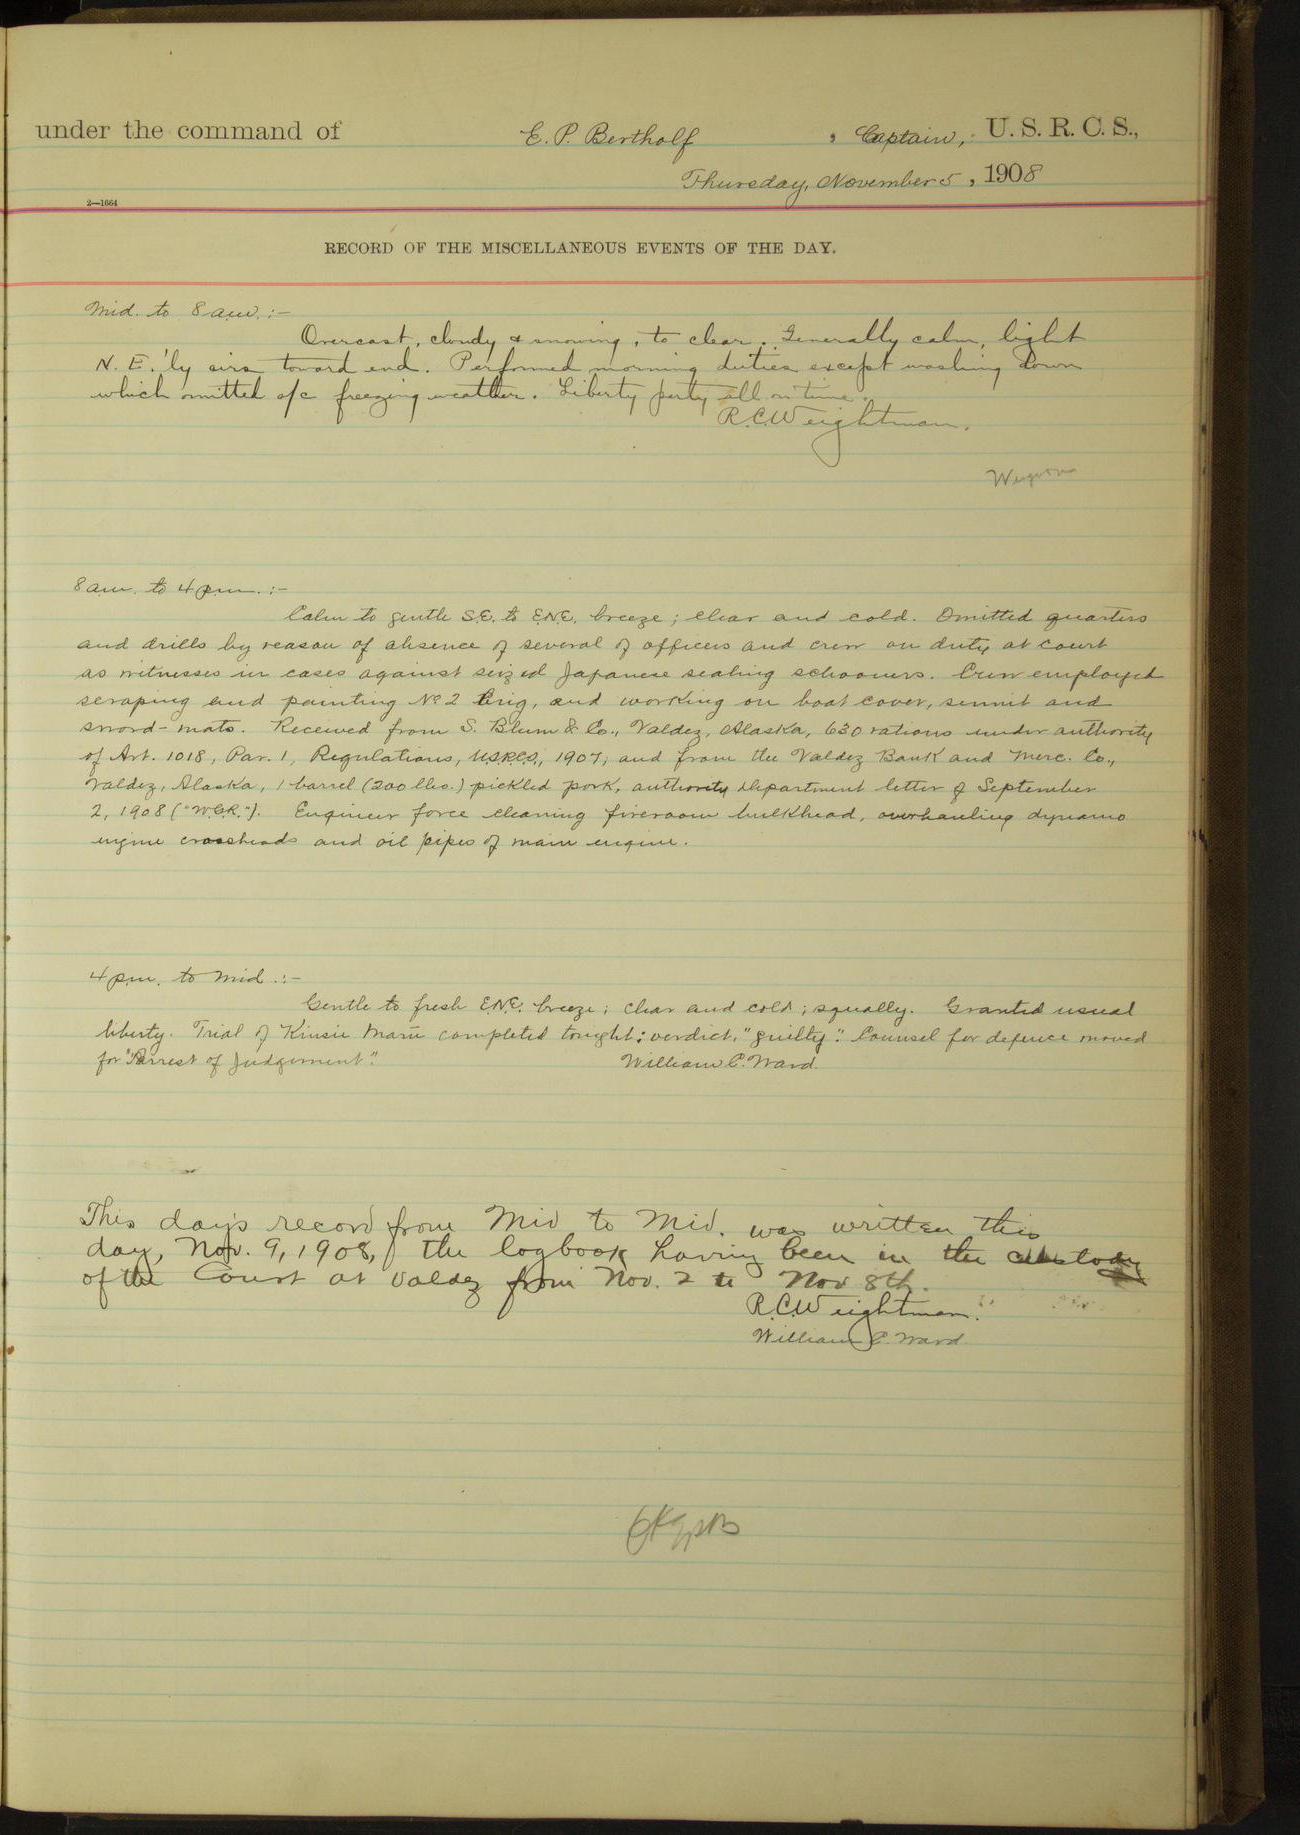 under the command of E. P. Bertholf, Captain, U. S. R. C. S.,
Thursday, November 5, 1908
2—1664
RECORD OF THE MISCELLANEOUS EVENTS OF THE DAY.
Mid. to 8 a.m. :-
Overcast, cloudy & snowing, to clear. Generally calm, light
N. E.'ly airs toward end. Performed morning duties except washing down
which omitted o/c freezing weather. Liberty party all on time.
R.C.Weightman.
8 a.m. to 4 p.m. :-
Calm to gentle S.E. to E.N.E. breeze; clear and cold. Omitted quarters
and drills by reason of absence of several of officers and crew on duty at court
as witnesses in cases against seized Japanese sealing schooners. Crew employed
scraping and painting No 2 brig, and working on boat cover, sennit and
sword-mats. Received from S. Blum & Co., Valdez, Alaska, 630 rations under authority
of Art. 1018, Par. 1, Regulations, U.S.R.C.S., 1907, and from the Valdez Bank and Merc. Co.,
Valdez, Alaska, 1 barrel (200 lbs.) pickled pork, authority Department letter of September
2, 1908 ("W.G.R."). Engineer force cleaning fireroom bulkhead, overhauling dynamo
engine crossheads and oil pipes of main engine.
4 p.m. to Mid. :-
Gentle to fresh E.N.E. breeze; clear and cold; squally. Granted usual
liberty. Trial of Kinsie Maru completed tonight: verdict, "guilty". Counsel for defence moved
for "Arrest of Judgement". William C. Ward.
This day's record from Mid to Mid. was written this
day, Nov. 9, 1908, the logbook having been in the custody
of the Court at Valdez from Nov. 2 to Nov 8th.
R.C.Weightman.
William C. Ward